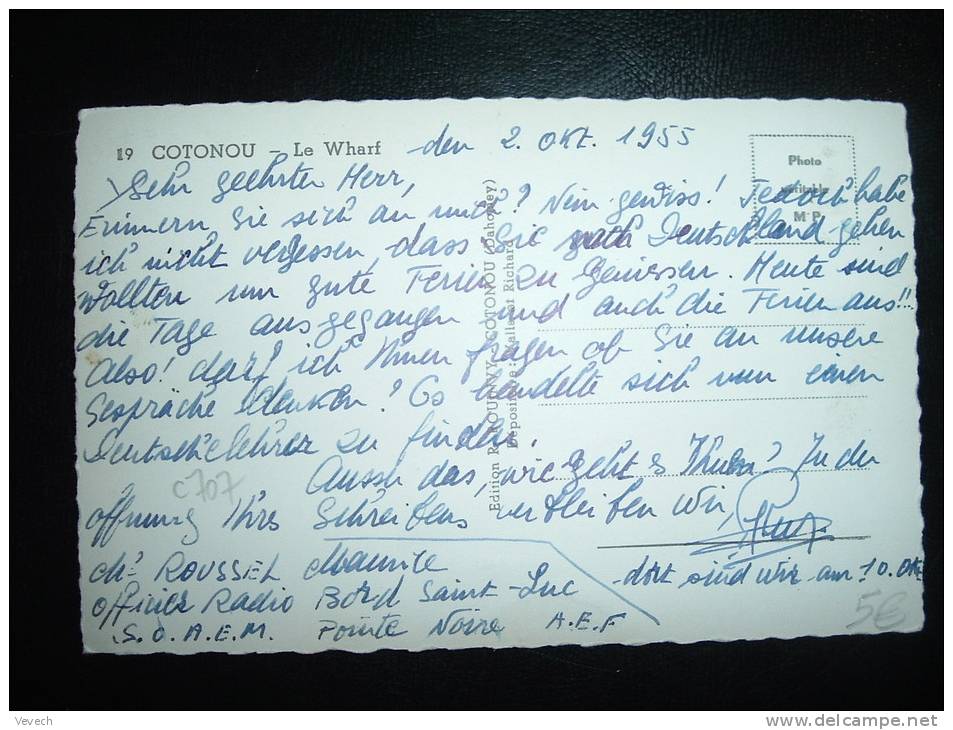 19 COTONOU – Le Wharf den 2. Okt. 1955
Photo
véritable
M P
Sehr geehrter Herr,
Erinnern Sie sich an mich? Nein gewiss! Jedoch habe
ich nicht vergessen, dass Sie nach Deutschland gehen
wollten um gute Ferien zu geniessen. Heute sind
die Tage ausgegangen und auch die Ferien aus!!
Also! darf ich Ihnen fragen ob Sie an unsere
Gespräche denken? Es handelte sich um einen
Deutschlehrer zu finden.
Ausser das, wie geht's Ihnen? In der
offnung Ihres Schreibens verbleiben wir,
Mr ROUSSEL Maurice
officier Radio Bord Saint-Luc dort sind wir am 10. Okt
S.O.A.E.M. Pointe Noire A.E.F
Edition R. COTONOU (Dahomey)
Dépositaire: Richard
C707
5€
Vevech
www.delcampe.net